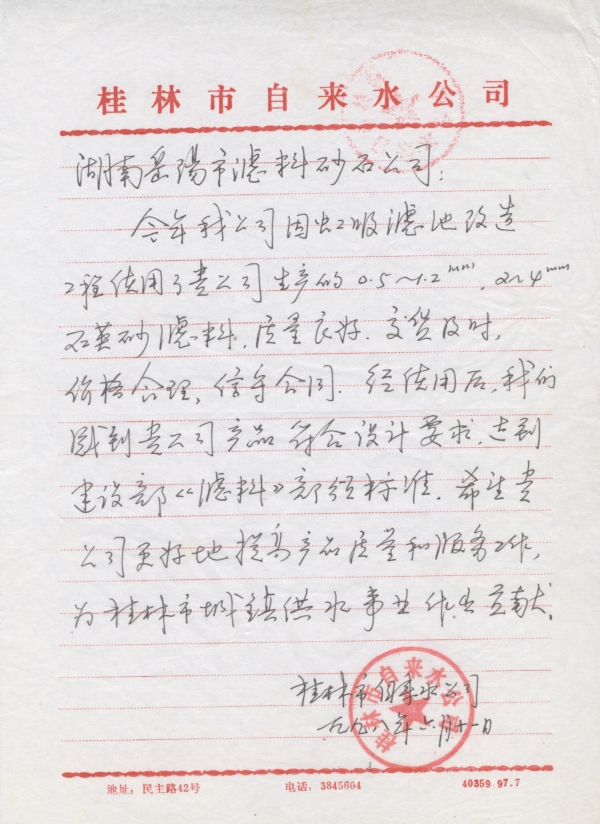 桂林市自来水公司
湖南岳阳市滤料砂石公司:
今年我公司因虹吸滤池改造
工程使用了贵公司生产的0.5~1.2mm、2~4mm
石英砂滤料,质量良好.交货及时,
价格合理,信守合同.经使用后,我们
感到贵公司产品符合设计要求,达到
建设部《滤料》部颁标准.希望贵
公司更好地提高产品质量和服务工作,
为桂林市城镇供水事业作出贡献.
桂林市自来水公司
一九九八年六月十一日
桂林市自来水公司
地址:民主路42号 电话:3845604 40359.97.7